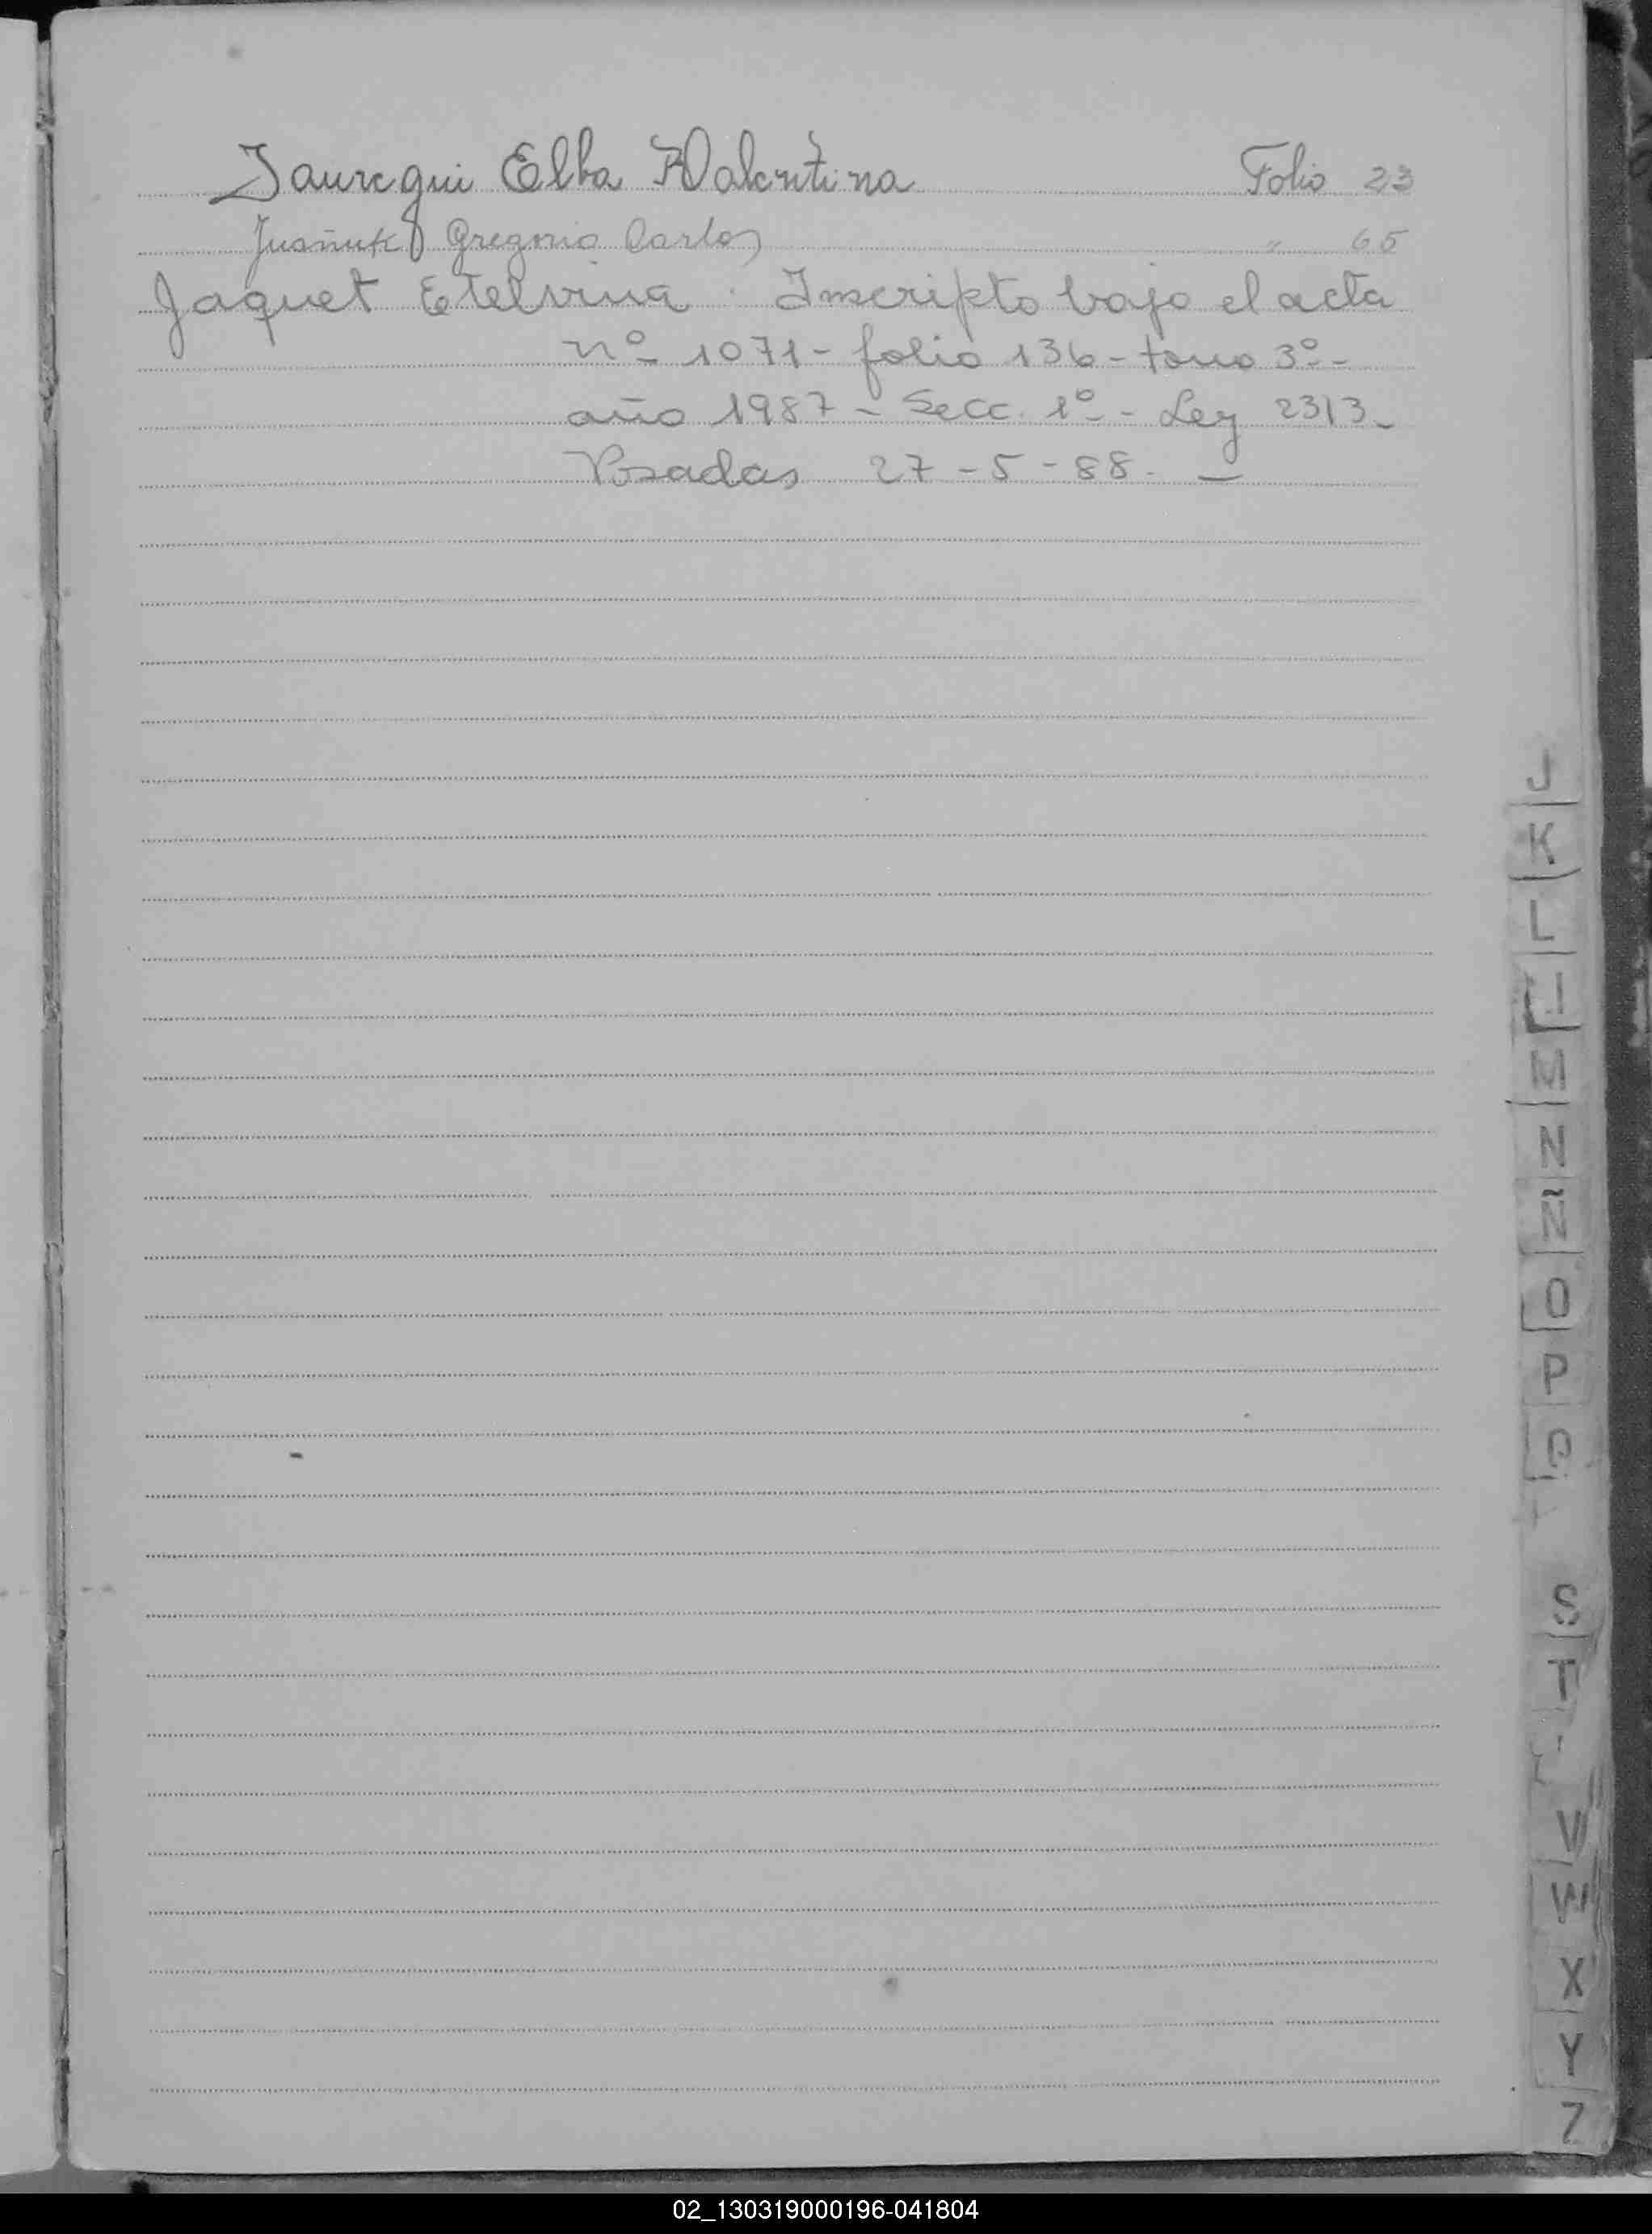 Jauregui Elba Valentina Folio 23
Gregorio Carlos " 65
Jaquet Etelvina. Inscripto bajo el acta
nº 1071 - folio 136 - tomo 3º -
año 1987 - Secc. 1º - Ley 2313 -
Posadas 27 - 5 - 88 - —
J
K
L
M
N
Ñ
O
P
Q
S
T
V
W
X
Y
Z
02_130319000196-041804